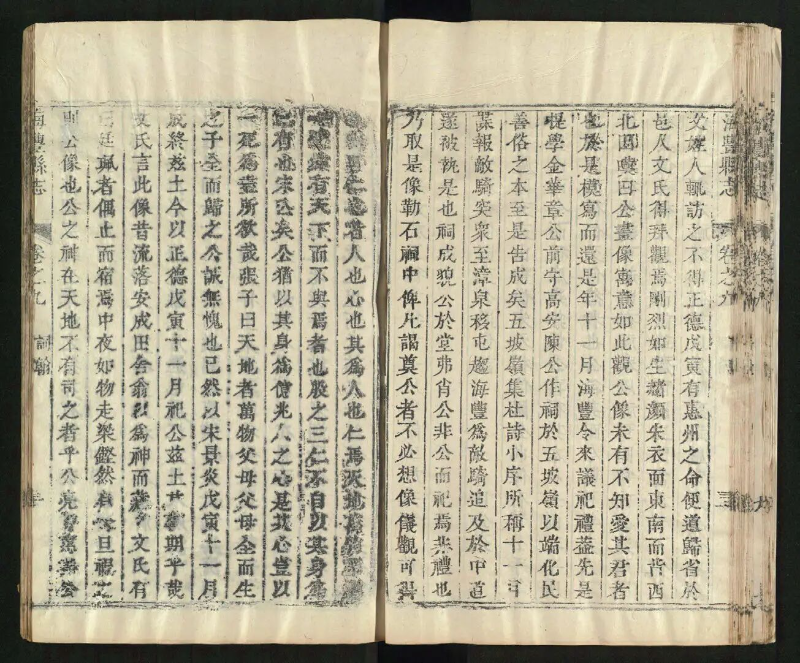 海豐縣志
卷之九
文雄人輒訪之不得正德戊寅有惠州之命便道歸省於
邑人文氏得拜觀焉剛烈如生緒顏朱衣面東南而背西
北因嘆曰公畫像寓意如此觀公像未有不知愛其君者
也於是模寫而還是年十一月海豐令來議祀禮蓋先是
提學金華章公前守高安陳公作祠於五坡嶺以端化民
善俗之本至是告成矣五坡嶺集杜詩小序所稱十一月
諜報敵騎突眾至漳泉移屯趨海豐為敵騎追及於中道
遂被執是也祠成貌公於堂弗肖公非公而祀焉非禮也
乃取是像勒石祠中俾凡謁奠公者不必想像儀觀可得
者人也心也其為人也仁焉天地
者天下而不與焉者也殷之三仁不自以其身為
有也宋公矣公猶以其身為億兆人之心是其心豈以
一死為蓋所欲哉張子曰天地者萬物父母父母全而生
之子全而歸之公誠無愧也已然以宋景炎戊寅十一月
成終茲土今以正德戊寅十一月祀公茲土其有期乎哉
文氏言此像昔流落安成田舍翁以為神而 文氏有
者偶止而宿焉中夜如物走梁鏗然 旦視之
則公像也公之神在天地不有司之者乎公
海豐縣志
卷之九
詞翰